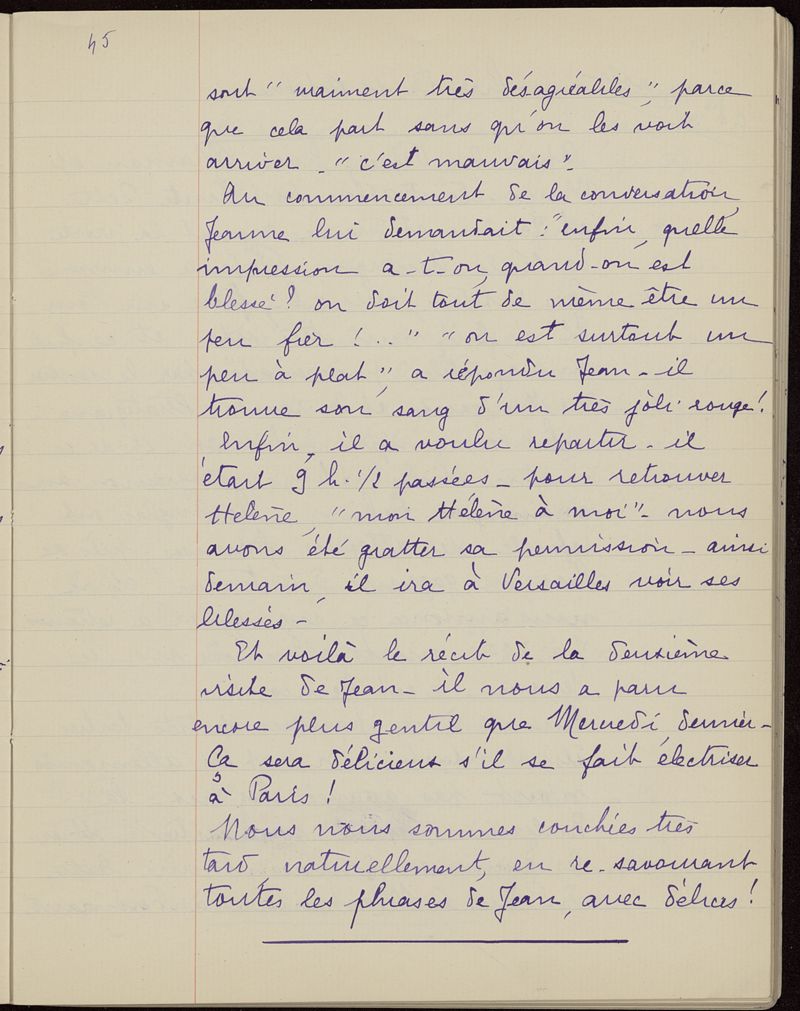 45
sont " vraiment très désagréables ", parce
que cela part sans qu'on les voit
arriver - " c'est mauvais " -
Au commencement de la conversation,
Jeanne lui demandait : " enfin, quelle
impression a-t-on, quand-on est
blessé ? on doit tout de même être un
peu fier ! .. " " on est surtout un
peu à plat ", a répondu Jean - il
trouve son sang d'un très joli rouge !
Enfin, il a voulu repartir - il
était 9 h. 1/2 passées - pour retrouver
Hélène, " mon Hélène à moi " - nous
avons été gratter sa permission - ainsi
demain, il ira à Versailles voir ses
blessés -
Et voilà le récit de la deuxième
visite de Jean - il nous a paru
encore plus gentil que Mercredi dernier -
Ça sera délicieux s'il se fait électriser
à Paris !
Nous nous sommes couchées très
tard, naturellement, en re-savourant
toutes les phrases de Jean, avec délices !